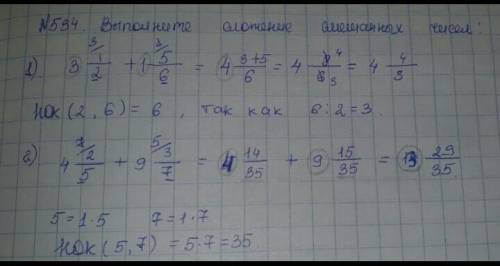 №594. Выполните сложение смешанных чисел:
1) 3 1/2 + 1 5/6 = 4 (3+5)/6 = 4 8/6 = 4 4/3
НОК (2, 6) = 6, так как 6:2=3.
2) 4 2/5 + 9 3/7 = 4 14/35 + 9 15/35 = 13 29/35
5=1·5 7=1·7
НОК (5,7) = 5·7=35.